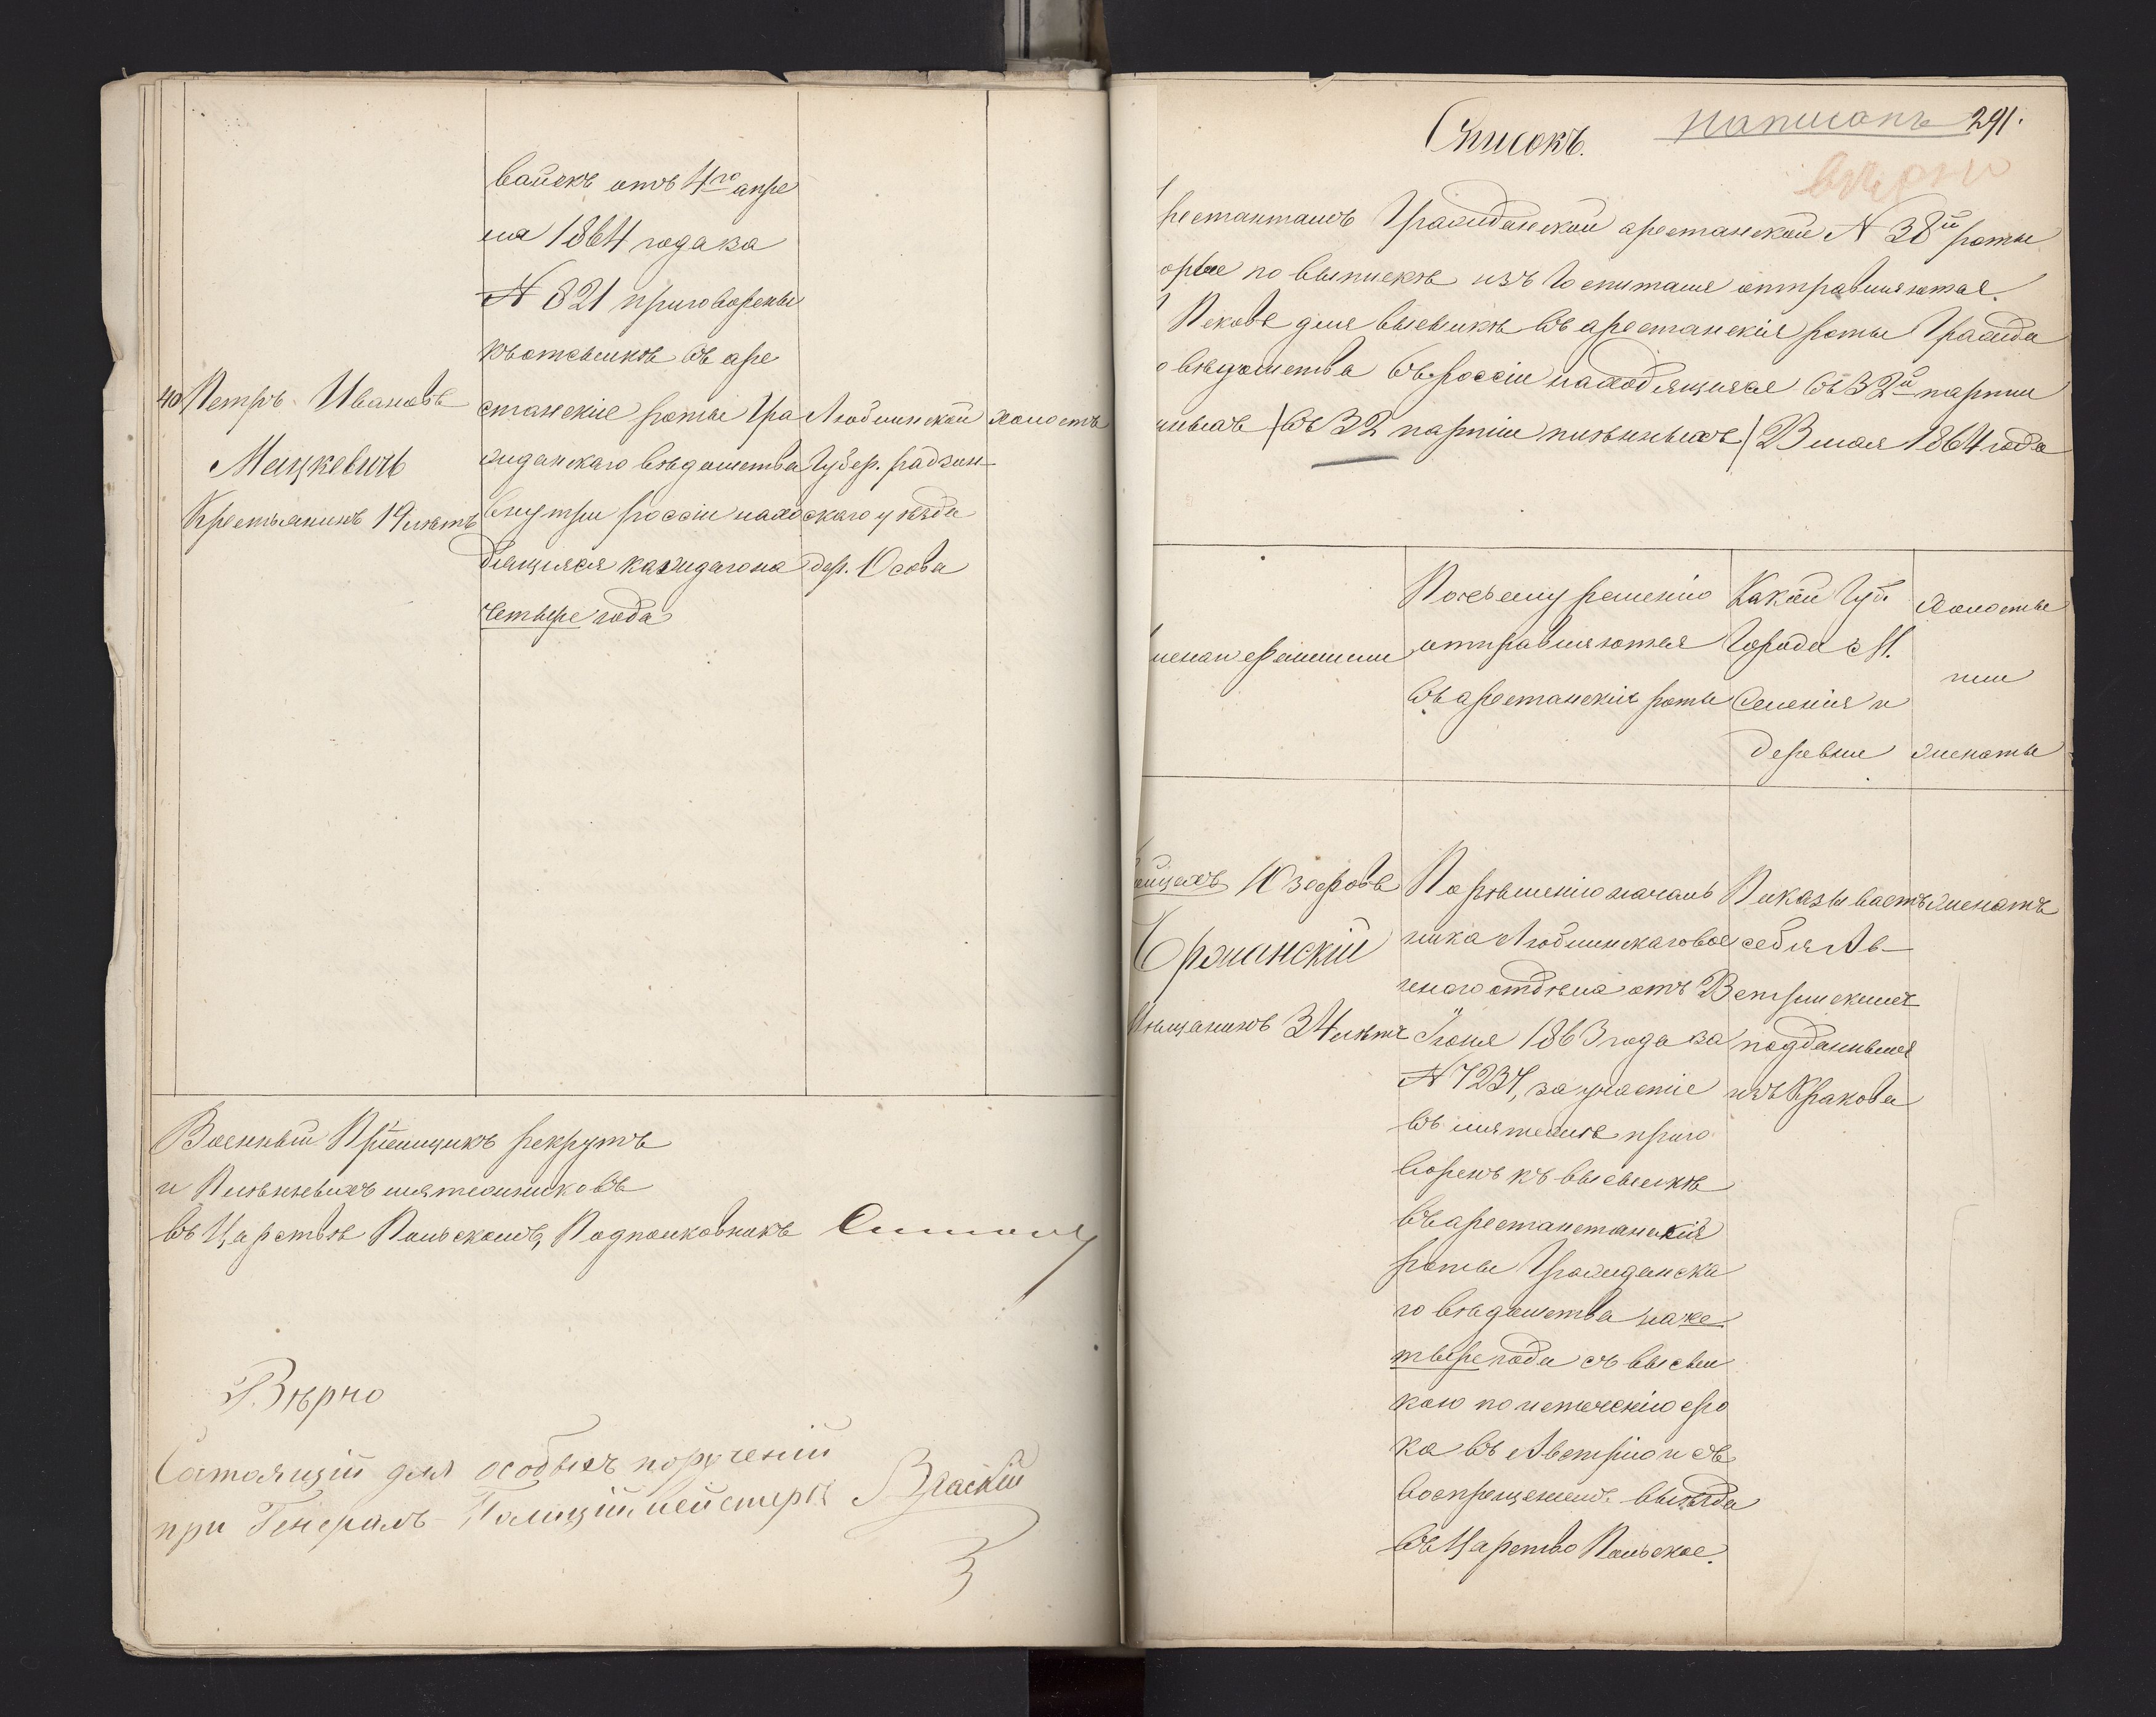 войскъ отъ 4го апре
ля 1864 года за
№ 821 приговорены
къ отсылкѣ въ аре
40 Петръ Ивановъ
Мацкевичъ
Крестьянинъ 19 лѣтъ
станскіе роты Гра
жданскаго вѣдомства
внутри россіи нахо
дящіяся каждаго на
четыре года
Люблинской
Губер. радзин-
скаго уѣзда
дер. Осова
холостъ
Военный Пріемщикъ рекрутъ
и Плѣнныхъ мятежниковъ
въ Царствѣ Польскомъ, Подполковникъ
Вѣрно
Состоящій для особыхъ порученій
при Генералъ-Полицiймейстерѣ
Списокъ.
написанъ 291.
вѣрно
рестантамъ Гражданской арестанской № 38й роты
орые по выпискѣ изъ Госпиталя отправляются
Псковѣ для высылкѣ въ арестанскія роты Гражда
о вѣдомства въ россіи находящіяся въ 32й партіи
нныхъ (въ 32 партіи плѣнныхъ) 23 мая 1864 года
мена и фамиліи
По чьему решенію
отправляются
въ арестанскія роты
Какой Губ.
Города М.
Селенія и
деревни
Холосты
или
женаты
ойцехъ Юзефовъ
Мѣщанинъ 34 лѣтъ
По рѣшенію началь
ника Люблинскаго вое
ннаго отдѣла отъ 23
Іюня 1863 года за
№ 7237, за участіе
въ мятежѣ приго
воренъ къ высылкѣ
въ арестанстанскія
роты Гражданска
го вѣдомства на че
тыре года съ высыл
кою по истеченію сро
ка въ Австрію и съ
воспрещенемъ въѣзда
въ Царство Польское.
Показываетъ
себя Ав-
стрийскимъ
подданнымъ
изъ Кракова
женатъ